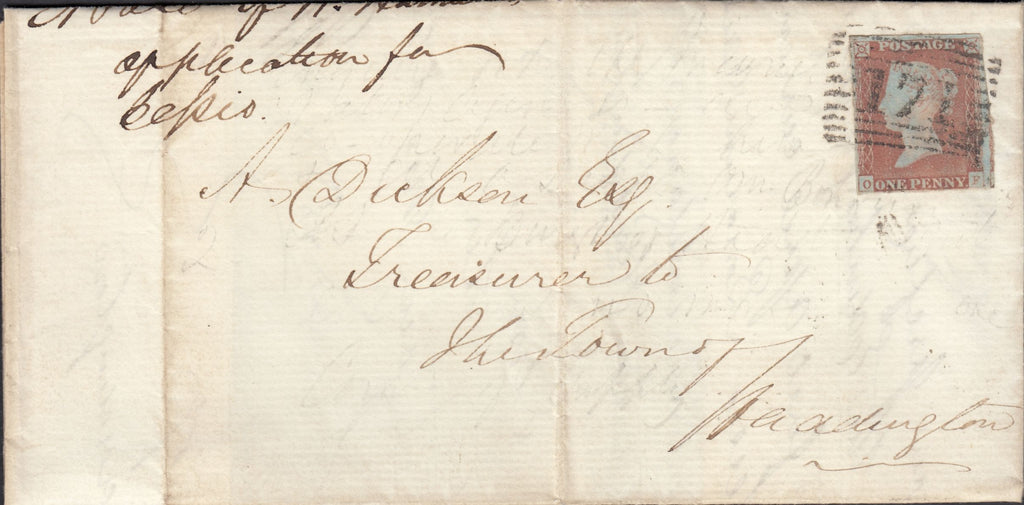 of
application for
Cessio.
A. Dickson Esq.
Treasurer to
The Town of
Haddington
POSTAGE
171
O
ONE PENNY